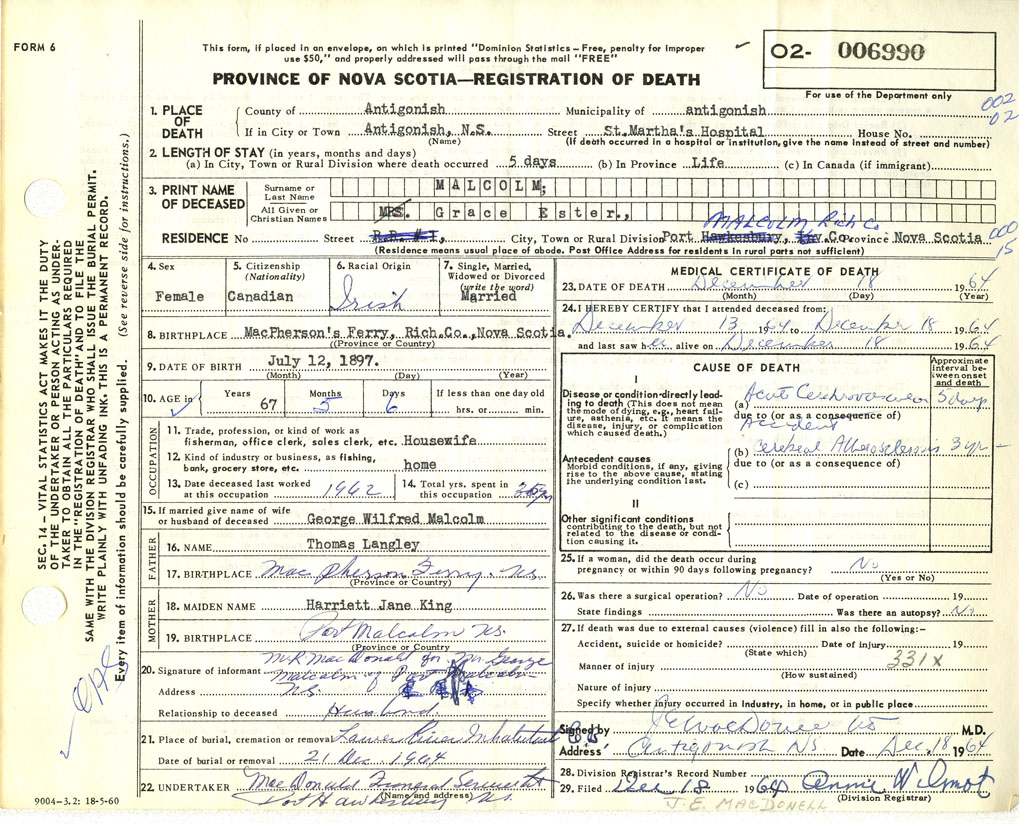 FORM 6
This form, if placed in an envelope, on which is printed "Dominion Statistics – Free, penalty for improper
use $50," and properly addressed will pass through the mail "FREE"
PROVINCE OF NOVA SCOTIA—REGISTRATION OF DEATH
02- 006990
For use of the Department only
002
02
1. PLACE OF DEATH
County of Antigonish Municipality of antigonish
If in City or Town Antigonish, N.S. Street St.Martha's Hospital House No.
(Name) (If death occurred in a hospital or institution, give the name instead of street and number)
2. LENGTH OF STAY (in years, months and days)
(a) In City, Town or Rural Division where death occurred 5 days (b) In Province Life (c) In Canada (if immigrant)
3. PRINT NAME OF DECEASED
Surname or Last Name MALCOLM;
All Given or Christian Names MRS. Grace Ester.,
MALCOLM Rich Co
RESIDENCE No Street R.R. #1, City, Town or Rural Division Port Hawkesbury, Inv.Co. Province Nova Scotia
000
15
(Residence means usual place of abode. Post Office Address for residents in rural parts not sufficient)
4. Sex
Female
5. Citizenship
(Nationality)
Canadian
6. Racial Origin
Irish
7. Single, Married,
Widowed or Divorced
(write the word)
Married
8. BIRTHPLACE MacPherson's Ferry, Rich.Co.,Nova Scotia.
(Province or Country)
9. DATE OF BIRTH July 12, 1897.
(Month) (Day) (Year)
10. AGE in Years 67 Months 5 Days 6 If less than one day old
hrs. or min.
OCCUPATION
11. Trade, profession, or kind of work as
fisherman, office clerk, sales clerk, etc. Housewife
12. Kind of industry or business, as fishing,
bank, grocery store, etc. home
13. Date deceased last worked
at this occupation 1962
14. Total yrs. spent in
this occupation
15. If married give name of wife
or husband of deceased George Wilfred Malcolm
FATHER
16. NAME Thomas Langley
17. BIRTHPLACE MacPherson Ferry. NS
(Province or Country)
MOTHER
18. MAIDEN NAME Harriett Jane King
19. BIRTHPLACE Port Malcolm NS.
(Province or Country)
20. Signature of informant M.R. MacDonald for Mr George
Malcolm of Port Malcolm
Address N.S.
Relationship to deceased Husband
21. Place of burial, cremation or removal Lower River Inhabitants
Date of burial or removal 21 Dec 1964
22. UNDERTAKER MacDonald Funeral Service
(Name and address)
Port Hawkesbury NS.
9004–3.2: 18-5-60
MEDICAL CERTIFICATE OF DEATH
23. DATE OF DEATH December 18 1964
(Month) (Day) (Year)
24. I HEREBY CERTIFY that I attended deceased from:
December 13 1964 to December 18 1964
and last saw her alive on December 18 1964
CAUSE OF DEATH
Approximate
interval be-
tween onset
and death
I
Disease or condition directly lead-
ing to death (This does not mean
the mode of dying, e.g., heart fail-
ure, asthenia, etc. It means the
disease, injury, or complication
which caused death.)
(a) Acute Cerebrovascular 5 days
due to (or as a consequence of)
Accident
Antecedent causes
Morbid conditions, if any, giving
rise to the above cause, stating
the underlying condition last.
(b) Cerebral Atherosclerosis 3 yr
due to (or as a consequence of)
(c)
II
Other significant conditions
contributing to the death, but not
related to the disease or condi-
tion causing it.
25. If a woman, did the death occur during
pregnancy or within 90 days following pregnancy? No
(Yes or No)
26. Was there a surgical operation? No Date of operation 19
State findings Was there an autopsy? No
27. If death was due to external causes (violence) fill in also the following:–
Accident, suicide or homicide? Date of injury 19
(State which) 331X
Manner of injury
(How sustained)
Nature of injury
Specify whether injury occurred in industry, in home, or in public place
Signed by J E MacDonell M.D.
Address Antigonish NS Date Dec. 18 1964
28. Division Registrar's Record Number
29. Filed Dec 18 1964 Annie Wilmot
(Division Registrar)
J. E. MACDONELL
SEC. 14 – VITAL STATISTICS ACT MAKES IT THE DUTY
OF THE UNDERTAKER OR PERSON ACTING AS UNDER-
TAKER TO OBTAIN ALL THE PARTICULARS REQUIRED
IN THE "REGISTRATION OF DEATH" AND TO FILE THE
SAME WITH THE DIVISION REGISTRAR WHO SHALL ISSUE THE BURIAL PERMIT.
WRITE PLAINLY WITH UNFADING INK. THIS IS A PERMANENT RECORD.
Every item of information should be carefully supplied. (See reverse side for instructions.)